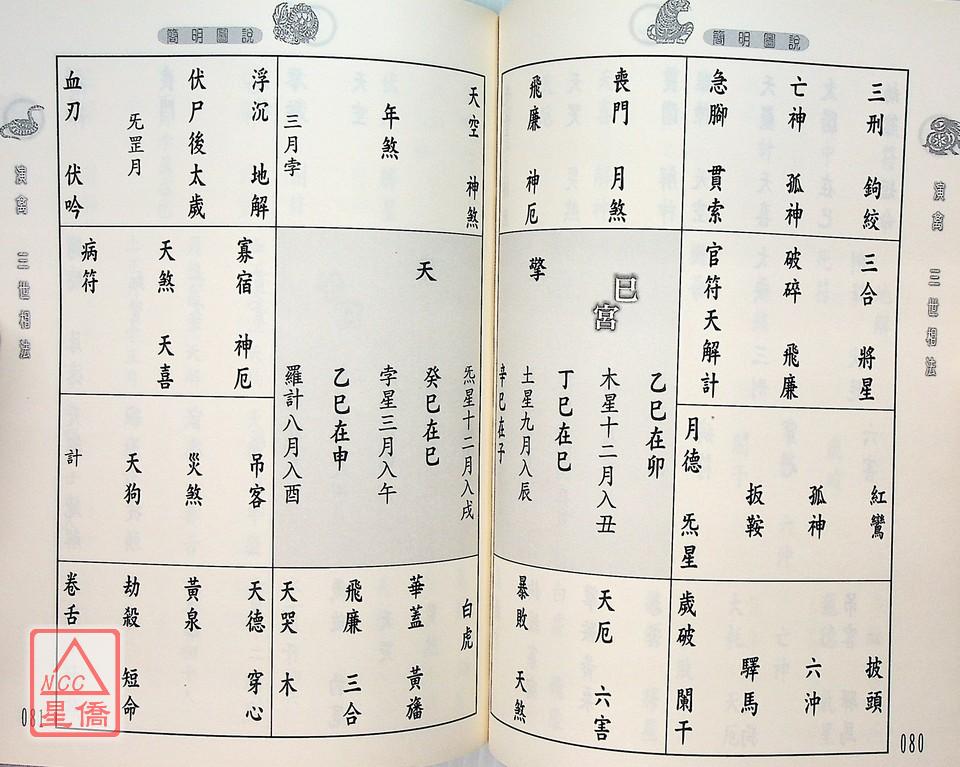 簡明圖說
演禽 三世相法
080
三刑 鉤絞
亡神 孤神
急腳 貫索
喪門 月煞
飛廉 神厄
三合 將星
破碎 飛廉
官符 天解 計
紅鸞
孤神
扳鞍
月德 炁星
披頭
六沖
驛馬
歲破 闌干
天厄 六害
暴敗 天煞
巳宮
擎
乙巳在卯
木星十二月入丑
丁巳在巳
土星九月入辰
辛巳在子
簡明圖說
天空 神煞
年煞
三月孛
浮沉 地解
伏尸 後太歲
炁罡月
血刃 伏吟
天
炁星十二月入戌
癸巳在巳
孛星三月入午
乙巳在申
羅計八月入酉
寡宿 神厄
天煞 天喜
病符
吊客
災煞
天狗
計
白虎
華蓋 黃旛
飛廉 三合
天哭 木
天德 穿心
黃泉
劫殺 短命
卷舌
演禽 三世相法
081
NCC
星僑